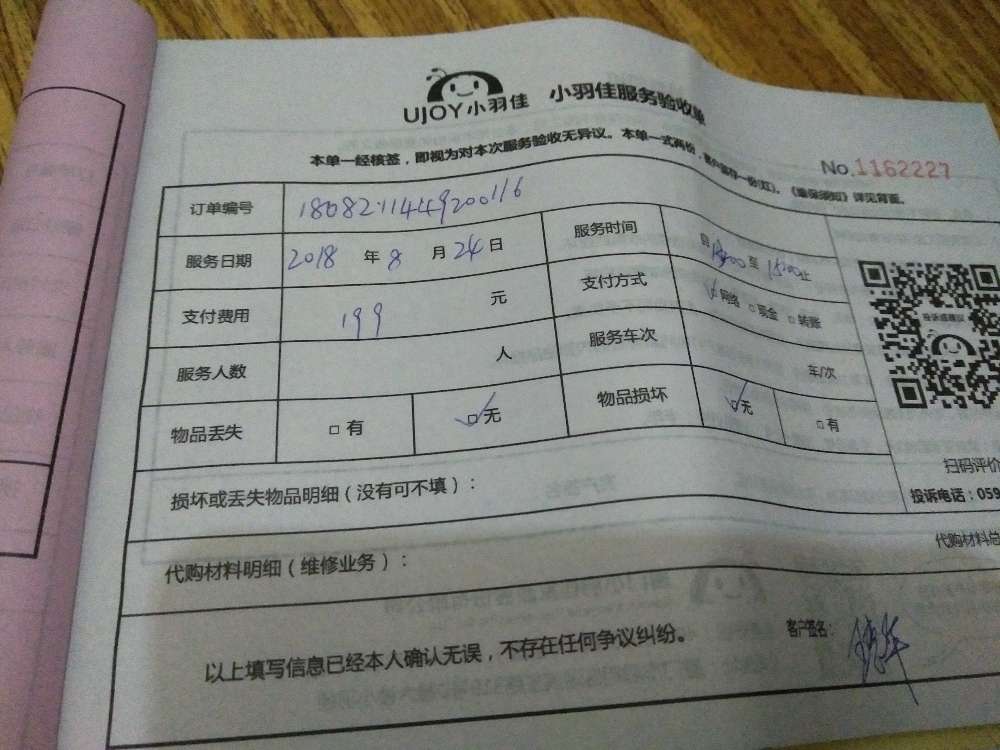 UJOY小羽佳 小羽佳服务验收单
本单一经核签，即视为对本次服务验收无异议。本单一式两份，客户留存一份(红)。《维保须知》详见背面。
No.1162227
订单编号 1808211449200116
服务日期 2018 年 8 月 24 日 服务时间 自 至 1500止
支付费用 199 元 支付方式 □网络 □现金 □转账
服务人数 人 服务车次 车/次
物品丢失 □ 有 □无 物品损坏 □无 □有
扫码评价
投诉电话：059
损坏或丢失物品明细（没有可不填）：
代购材料明细（维修业务）： 代购材料总
以上填写信息已经本人确认无误，不存在任何争议纠纷。 客户签名：